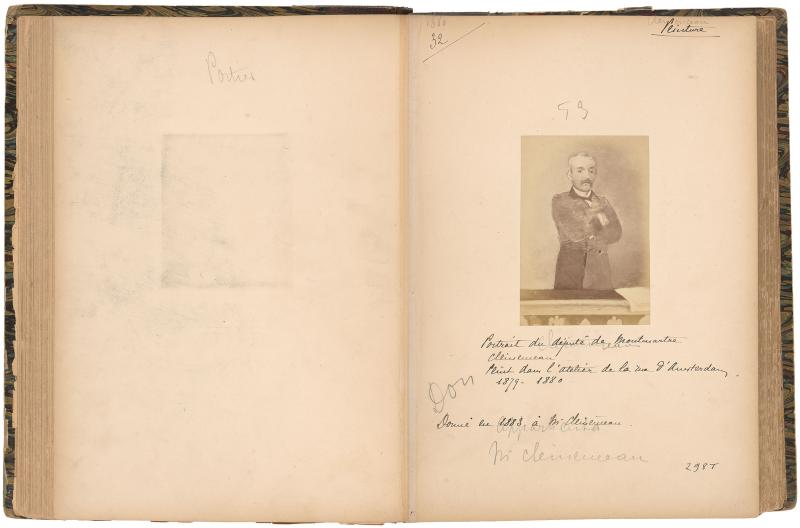 1880
32
Peinture
53
Portrait du député de Montmartre
Clemenceau
Peint dans l'atelier de la rue d'Amsterdam.
1879-1880
Don
Donné en 1883 à Mr Clemenceau.
Mr Clemenceau
298T